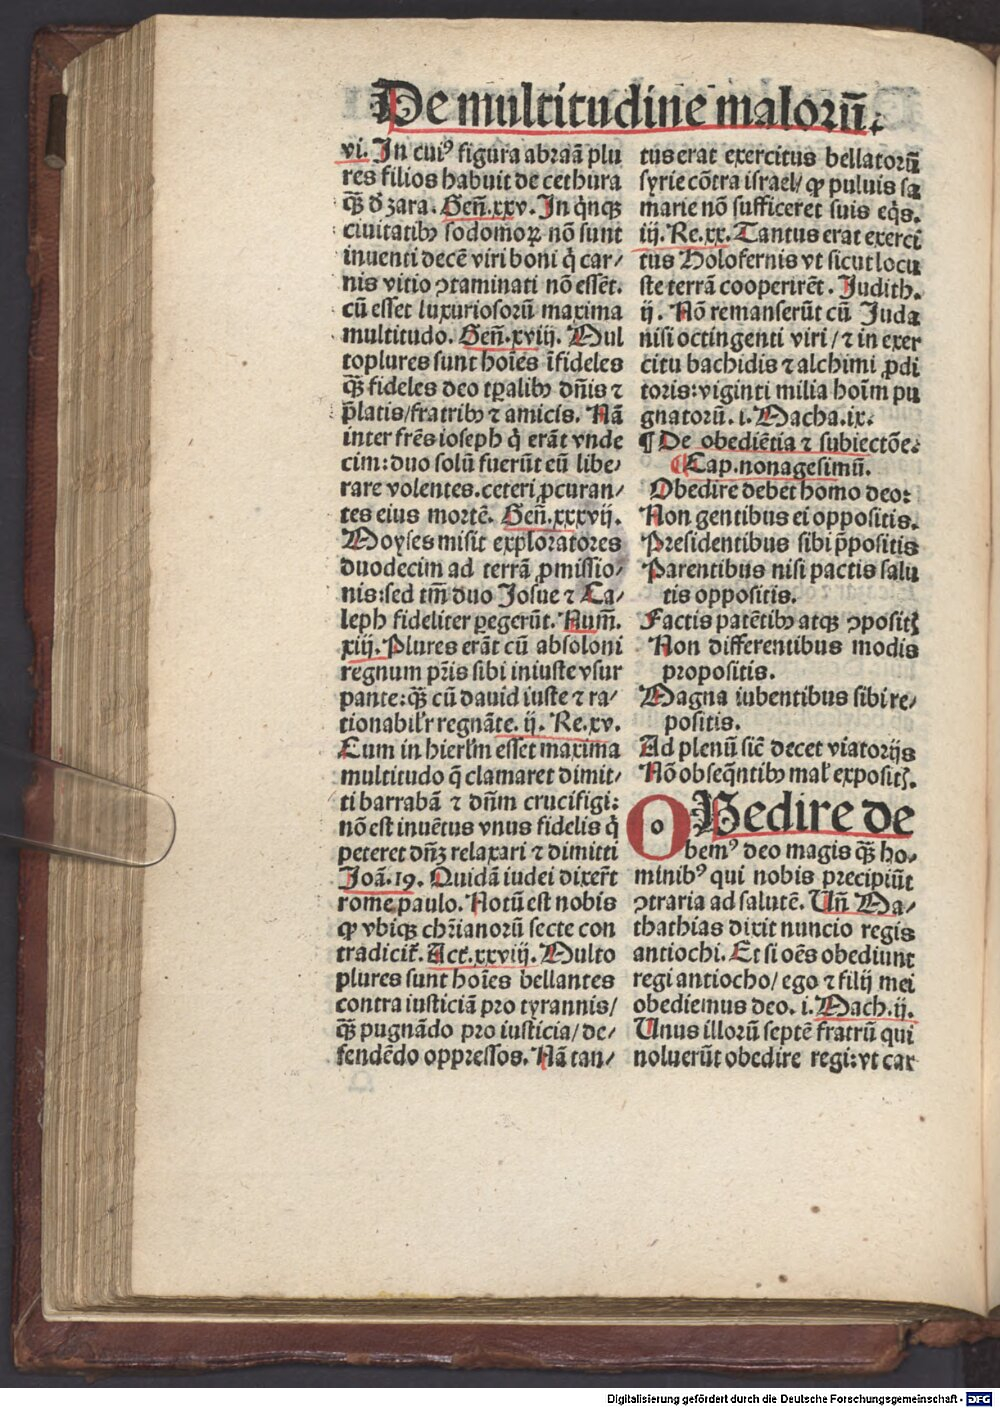 De multitudine malorū.
vi. In cuiꝰ figura abraā plu
res filios habuit de cethura
q̄ꝫ d̓ zara. Geñ.xxv. In q̇nqꝫ
ciuitatibꝫ sodomoꝝ nō sunt
inuenti decē viri boni q̇ car⸗
nis vitio ꝯtaminati nō essēt.
cū esset luxuriosorū maxima
multitudo. Geñ.xviij. Mul
toplures sunt hoīes īfideles
q̄ꝫ fideles deo tꝑalibꝫ dn̄is ⁊
p̄latis/fratribꝫ ⁊ amicis. Nā
inter fr̄es ioseph q̇ erāt vnde
cim:duo solū fuerūt eū libe⸗
rare volentes.ceteri ꝓcuran⸗
tes eius mortē. Geñ.xxxvij.
Moyses misit exploratores
duodecim ad terrā ꝓmissio⸗
nis:sed tm̄ duo Josue ⁊ Ca⸗
leph fideliter ꝑegerūt. Num̄.
xiij. Plures erāt cū absoloni
regnum pr̄is sibi iniuste vsur
pante:q̄ꝫ cū dauid iuste ⁊ ra⸗
tionabilr̓ regnāte. ij. Re.xv.
Cum in hierlm̄ esset maxima
multitudo q̄ clamaret dimit⸗
ti barrabā ⁊ dn̄m crucifigi:
nō est inuētus vnus fidelis q̇
peteret dn̄ꝫ relaxari ⁊ dimitti
Joā.19. Quidā iudei dixer̄t
rome paulo. Notū est nobis
ꝙ vbiqꝫ chr̄ianorū secte con
tradicit̄. Act̓.xxviij. Multo
plures sunt hoīes bellantes
contra iusticiā pro tyrannis/
q̄ꝫ pugnādo pro iusticia/de⸗
fendēdo oppressos. Nā tan⸗
tus erat exercitus bellatorū
syrie cōtra israel/ ꝙ puluis sa
marie nō sufficeret suis eq̇s.
iij. Re.xx. Tantus erat exerci
tus Holofernis vt sicut locu
ste terrā cooperirēt. Judith.
ij. Nō remanserūt cū Juda
nisi octingenti viri/⁊ in exer
citu bachidis ⁊ alchimi ꝓdi
toris:viginti milia hoīm pu
gnatorū. i. Macha.ix.
¶De obediētia ⁊ subiectōe.
¶Cap.nonagesimū.
Obedire debet homo deo:
Non gentibus ei oppositis.
Presidentibus sibi p̄positis
Parentibus nisi pactis salu
tis oppositis.
Factis patētibꝫ atqꝫ ꝯpositꝭ
Non differentibus modis
propositis.
Magna iubentibus sibi re⸗
positis.
Ad plenū sic̄ decet viatorijs
Nō obseq̄ntibꝫ mal̓ expositꝭ.
OBedire de
bemꝰ deo magis q̄ꝫ ho⸗
minibꝰ qui nobis precipiūt
ꝯtraria ad salutē. Un̄ Ma⸗
thathias dixit nuncio regis
antiochi. Et si oēs obediunt
regi antiocho/ ego ⁊ filij mei
obediemus deo. i. Mach.ij.
Unus illorū septē fratrū qui
noluerūt obedire regi:vt car
Digitalisierung gefördert durch die Deutsche Forschungsgemeinschaft - DFG